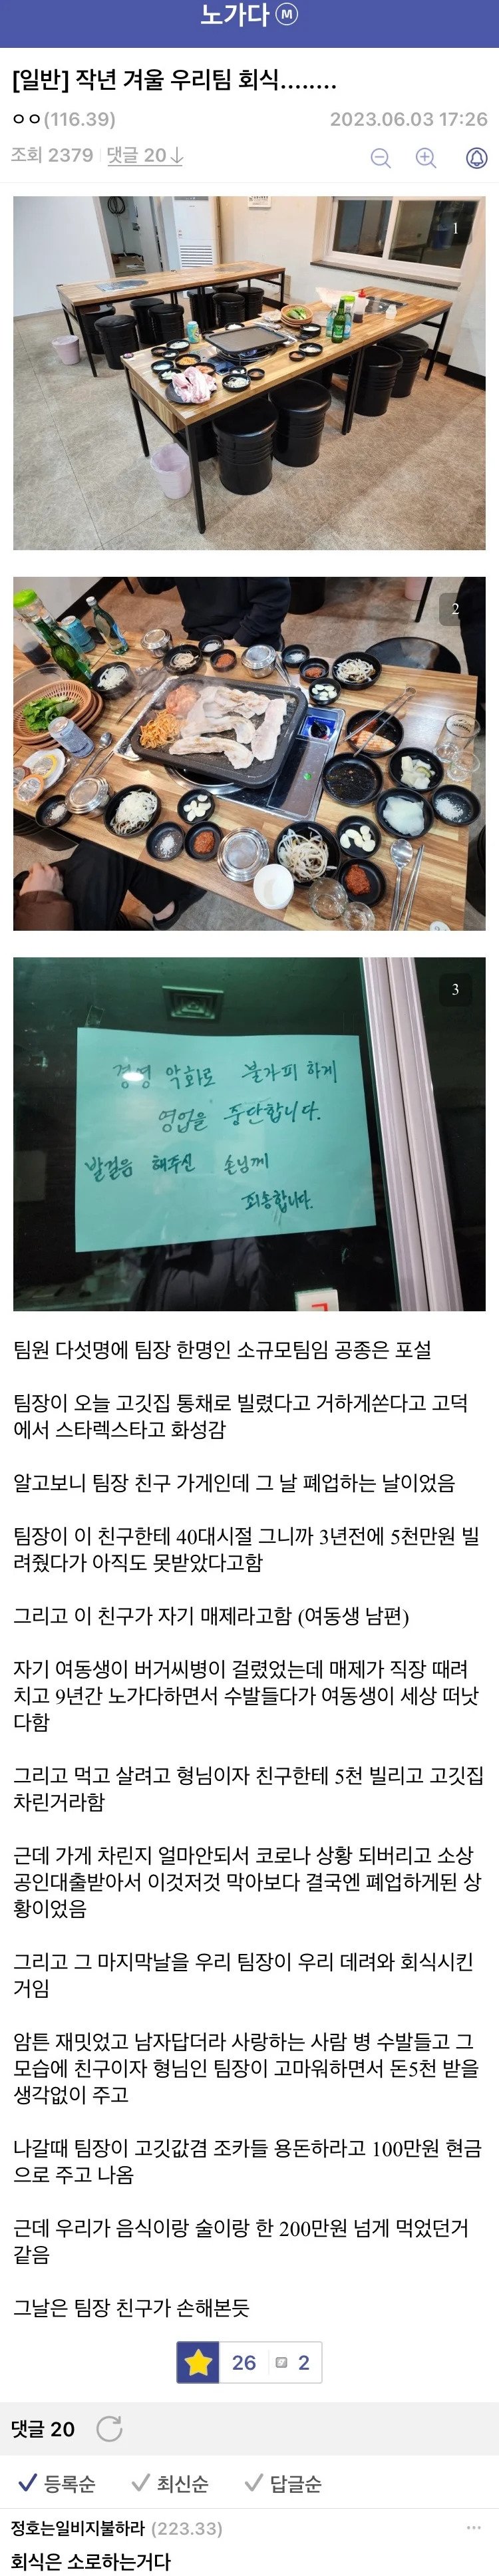 노가다 M
[일반] 작년 겨울 우리팀 회식........
ㅇㅇ(116.39) 2023.06.03 17:26
조회 2379 댓글 20↓
1
2
3
경영 악화로 불가피 하게
영업을 중단합니다.
발걸음 해주신 손님께
죄송합니다.
팀원 다섯명에 팀장 한명인 소규모팀임 공종은 포설
팀장이 오늘 고깃집 통채로 빌렸다고 거하게쏜다고 고덕
에서 스타렉스타고 화성감
알고보니 팀장 친구 가게인데 그 날 폐업하는 날이었음
팀장이 이 친구한테 40대시절 그니까 3년전에 5천만원 빌
려줬다가 아직도 못받았다고함
그리고 이 친구가 자기 매제라고함 (여동생 남편)
자기 여동생이 버거씨병이 걸렸었는데 매제가 직장 때려
치고 9년간 노가다하면서 수발들다가 여동생이 세상 떠낫
다함
그리고 먹고 살려고 형님이자 친구한테 5천 빌리고 고깃집
차린거라함
근데 가게 차린지 얼마안되서 코로나 상황 되버리고 소상
공인대출받아서 이것저것 막아보다 결국엔 폐업하게된 상
황이었음
그리고 그 마지막날을 우리 팀장이 우리 데려와 회식시킨
거임
암튼 재밋었고 남자답더라 사랑하는 사람 병 수발들고 그
모습에 친구이자 형님인 팀장이 고마워하면서 돈5천 받을
생각없이 주고
나갈때 팀장이 고깃값겸 조카들 용돈하라고 100만원 현금
으로 주고 나옴
근데 우리가 음식이랑 술이랑 한 200만원 넘게 먹었던거
같음
그날은 팀장 친구가 손해본듯
26 2
댓글 20
등록순 최신순 답글순
정호는일비지불하라 (223.33)
회식은 소로하는거다